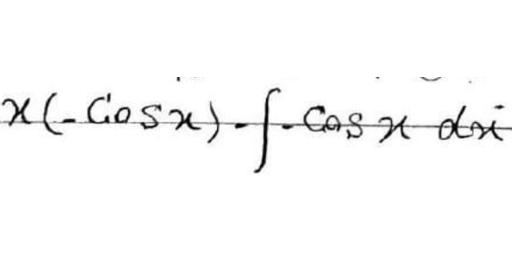 x(-Cosx)-∫-Cosx dx